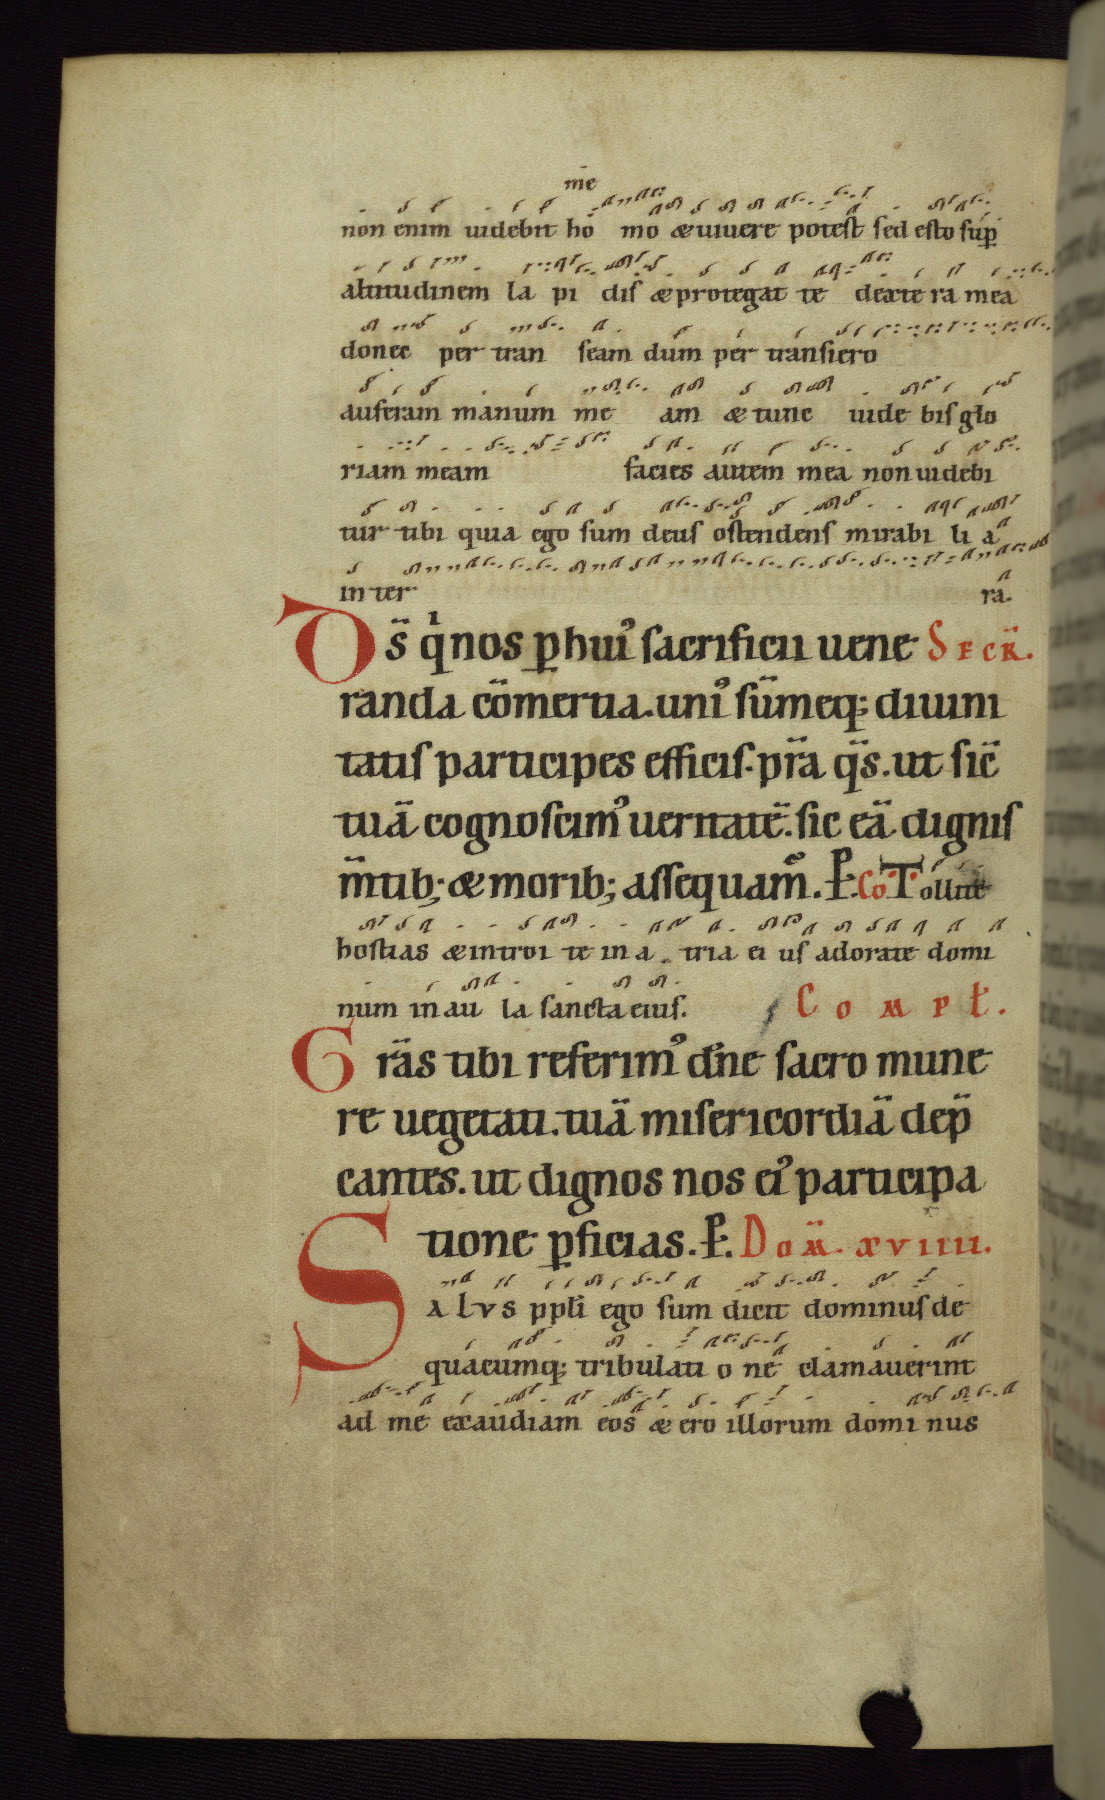 me
non enim uidebit ho mo & uiuere potest sed esto sup̄
altitudinem la pi dis & protegat te dexte ra mea
donec per tran seam dum per transiero
auferam manum me am & tunc uide bis glo
riam meam facies autem mea non uidebi
tur tibi quia ego sum deus ostendens mirabi li a
in ter ra.
Ds̄ qͥ nos ꝑ huiꝰ sacrificii uene Secr̄.
randa cōmertia. uniꝰ sūmeq; diuini
tatis participes efficis. p̄ra q̄s. ut sic̄
tuā cognoscimꝰ ueritatē. sic eā dignis
m̄tib; & morib; assequamꝰ. P. Co. Tollite
hostias & introi te in a tria ei us adorate domi
num in au la sancta eius. Compl̄.
Grās tibi referimꝰ dn̄e sacro mune
re uegetati. tuā misericordiā dep̄
cantes. ut dignos nos eiꝰ participa
tione ꝑficias. P. Dom̄. xviiii.
Salvs ppl̄i ego sum dicit dominus de
quacumq; tribulati o ne clamauerint
ad me exaudiam eos & ero illorum domi nus